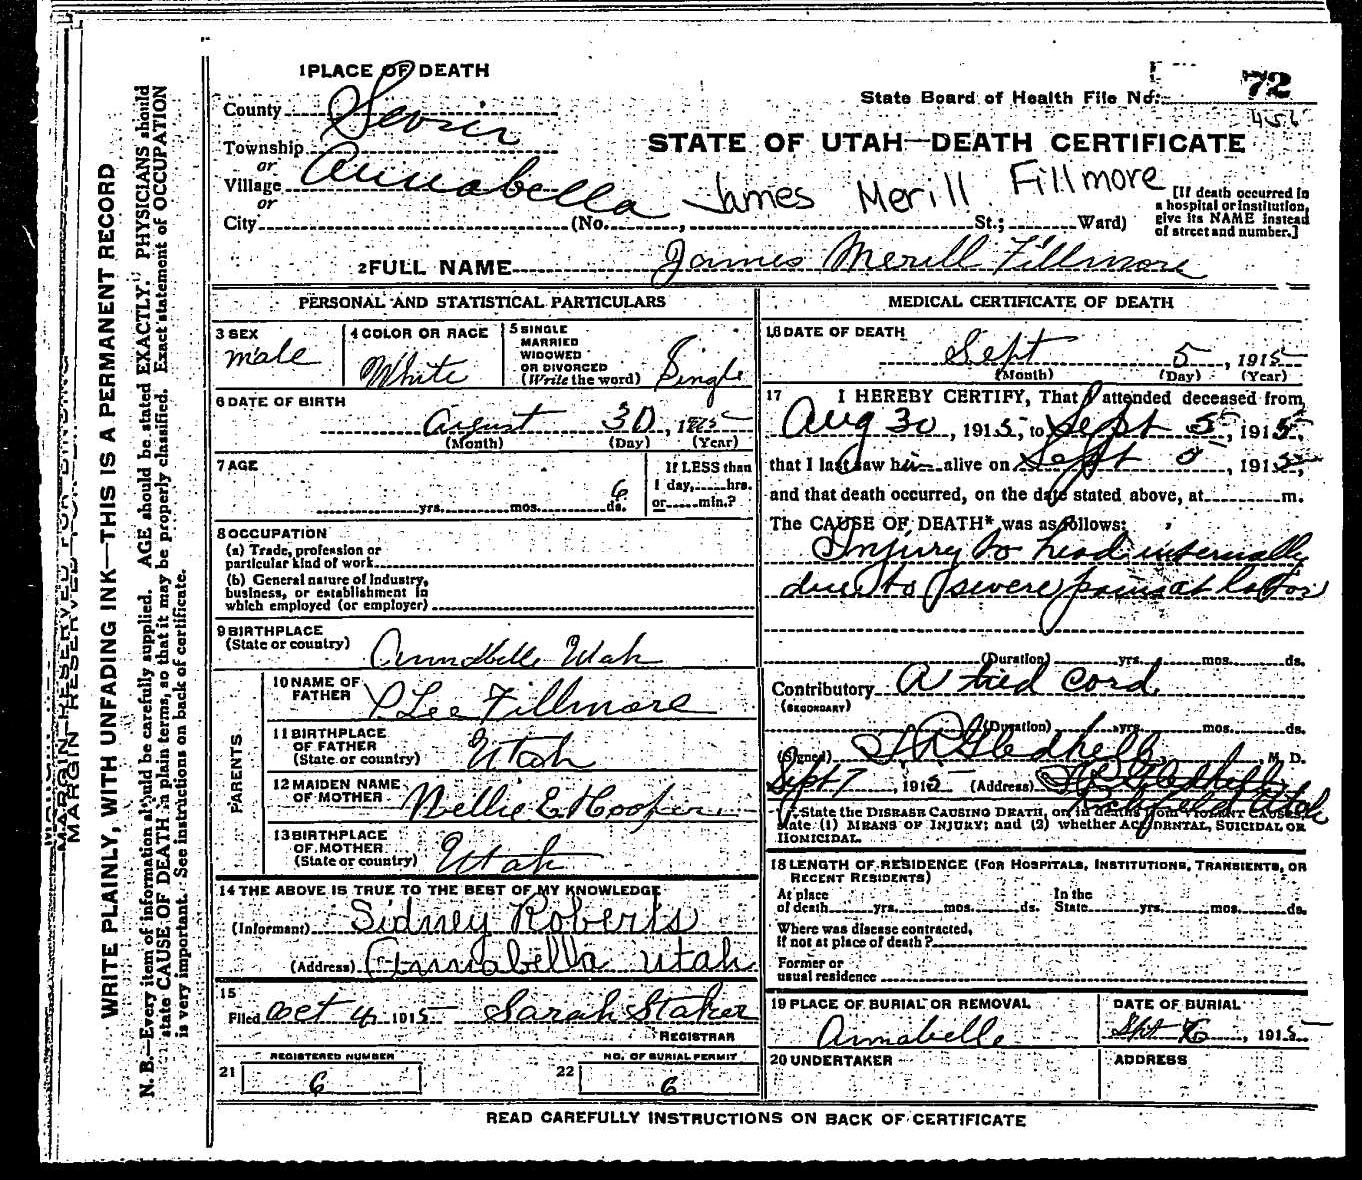 1 PLACE OF DEATH
County Sevier
Township
or
Village Annabella
or
City (No. , St.; Ward)
State Board of Health File No. 72
456
STATE OF UTAH—DEATH CERTIFICATE
James Merill Fillmore
[If death occurred in
a hospital or institution,
give its NAME instead
of street and number.]
2 FULL NAME James Merill Fillmore
PERSONAL AND STATISTICAL PARTICULARS
3 SEX
male
4 COLOR OR RACE
White
5 SINGLE
MARRIED
WIDOWED
OR DIVORCED
(Write the word) Single
6 DATE OF BIRTH
August 30, 1915
(Month) (Day) (Year)
7 AGE
6
yrs. mos. ds.
If LESS than
1 day, hrs.
or min.?
8 OCCUPATION
(a) Trade, profession or
particular kind of work
(b) General nature of industry,
business, or establishment in
which employed (or employer)
9 BIRTHPLACE
(State or country)
Annabelle Utah
PARENTS
10 NAME OF
FATHER
P. Lee Fillmore
11 BIRTHPLACE
OF FATHER
(State or country)
Utah
12 MAIDEN NAME
OF MOTHER
Nellie E Hooper
13 BIRTHPLACE
OF MOTHER
(State or country)
Utah
14 THE ABOVE IS TRUE TO THE BEST OF MY KNOWLEDGE
(Informant) Sidney Roberts
(Address) Annabella Utah
15
Filed Oct 4, 1915 Sarah Staker
REGISTRAR
REGISTERED NUMBER
21 6
NO. OF BURIAL PERMIT
22 6
MEDICAL CERTIFICATE OF DEATH
16 DATE OF DEATH
Sept 5, 1915
(Month) (Day) (Year)
17 I HEREBY CERTIFY, That I attended deceased from
Aug 30, 1915, to Sept 5, 1915,
that I last saw him alive on Sept 5, 1915,
and that death occurred, on the date stated above, at m.
The CAUSE OF DEATH* was as follows:
Injury to head internally
due to severe pains at labor
(Duration) yrs. mos. ds.
Contributory A tied cord
(SECONDARY)
(Duration) yrs. mos. ds.
(Signed) T R Gledhill M. D.
Sept 7, 1915 (Address) T R Gledhill
Richfield Utah
*State the DISEASE CAUSING DEATH, or, in deaths from VIOLENT CAUSES,
state (1) MEANS OF INJURY; and (2) whether ACCIDENTAL, SUICIDAL OR
HOMICIDAL.
18 LENGTH OF RESIDENCE (FOR HOSPITALS, INSTITUTIONS, TRANSIENTS, OR
RECENT RESIDENTS)
At place
of death yrs. mos. ds.
In the
State yrs. mos. ds.
Where was disease contracted,
if not at place of death?
Former or
usual residence
19 PLACE OF BURIAL OR REMOVAL
Annabelle
DATE OF BURIAL
Sept 6, 1915
20 UNDERTAKER
ADDRESS
READ CAREFULLY INSTRUCTIONS ON BACK OF CERTIFICATE
MARGIN RESERVED FOR BINDING
WRITE PLAINLY, WITH UNFADING INK—THIS IS A PERMANENT RECORD
N. B.—Every item of information should be carefully supplied. AGE should be stated EXACTLY. PHYSICIANS should
state CAUSE OF DEATH in plain terms, so that it may be properly classified. Exact statement of OCCUPATION
is very important. See instructions on back of certificate.